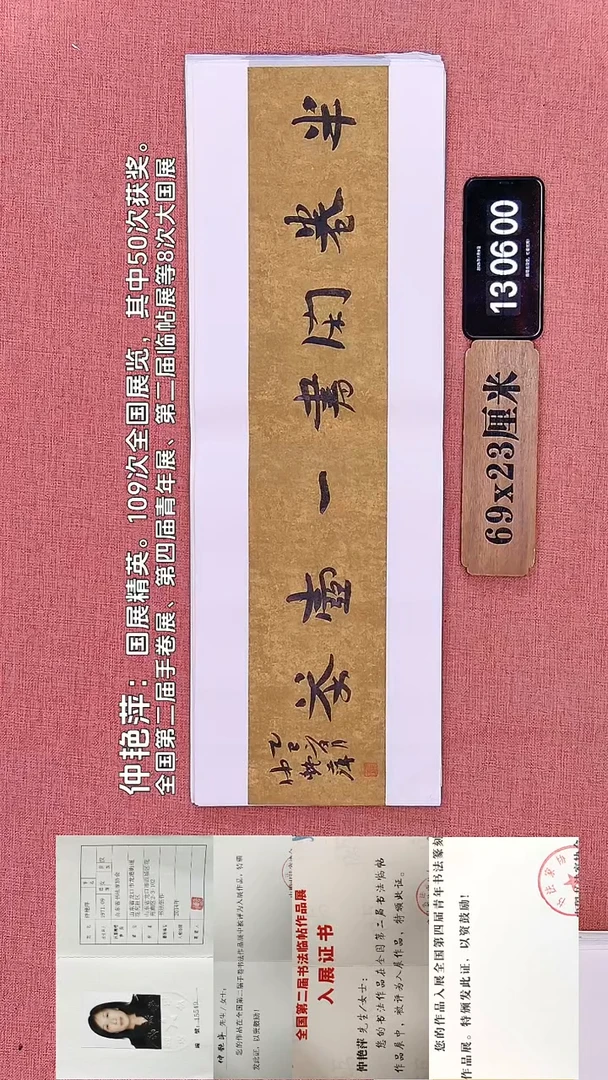 仲艳萍：国展精英。109次全国展览，其中50次获奖。
全国第二届手卷展、第四届青年展、第二届临帖展等8次大国展
半卷闲書一壶茶
乙巳
仲艳萍
13 06 00
69x23厘米
仲艳萍 先生/女士：
您的作品在全国第二届手卷书法作品展中被评为入展作品，特颁
发此证，以资鼓励！
全国第二届书法临帖作品展
入展证书
仲艳萍 先生/女士：
您的书法作品在全国第二届书法临帖
作品展中，被评为入展作品，特颁此证。
您的作品入展全国第四届青年书法篆刻
作品展。特颁发此证，以资鼓励！